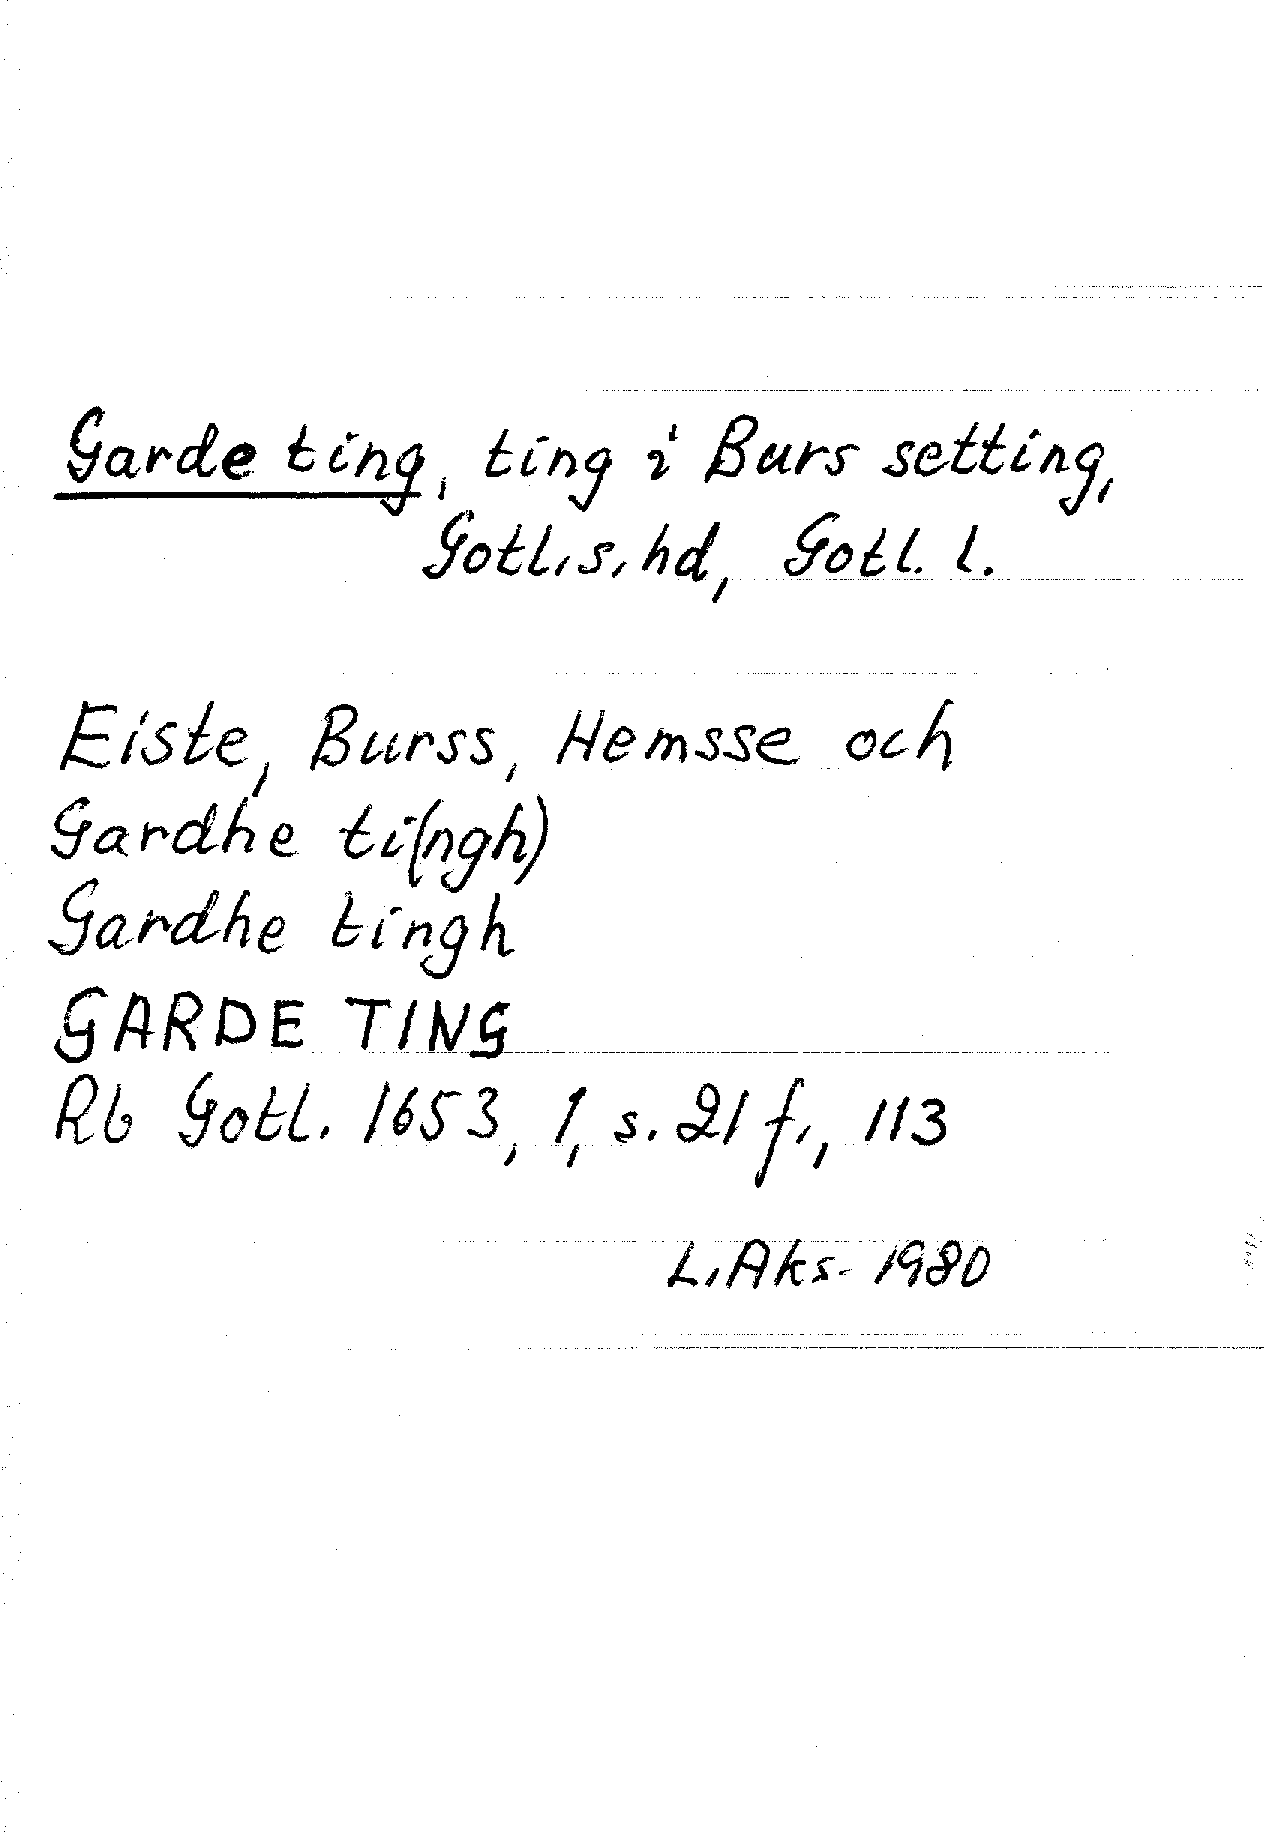 Garde ting, ting i Burs setting,
Gotl. s. hd, Gotl. l.
Eiste, Burss, Hemsse och
Gardhe ti(ngh)
Gardhe tingh
GARDE TING
Rb Gotl. 1653, 1, s. 21 f., 113
L. Aks- 1980